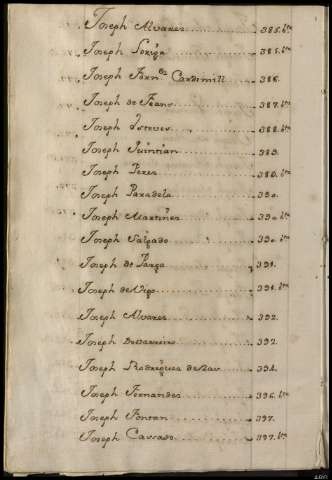 Joseph Alvares 385.bto
Joseph 385.bto
Joseph Fern.ez Cardimill 386.
Joseph de Feans 387.bto
Joseph Esteves 388.bto
Joseph Quintian 389.
Joseph Peres 389.bto
Joseph Paradela 390.
Joseph Martines 390.bto
Joseph Salgado 390.bto
Joseph de Parga 391.
Joseph de Vigo 391.bto
Joseph Alvares 392.
Joseph 392.
Joseph Rodrigues de 394.
Joseph Fernandes 396.bto
Joseph Fontan 397.
Joseph 397.bto